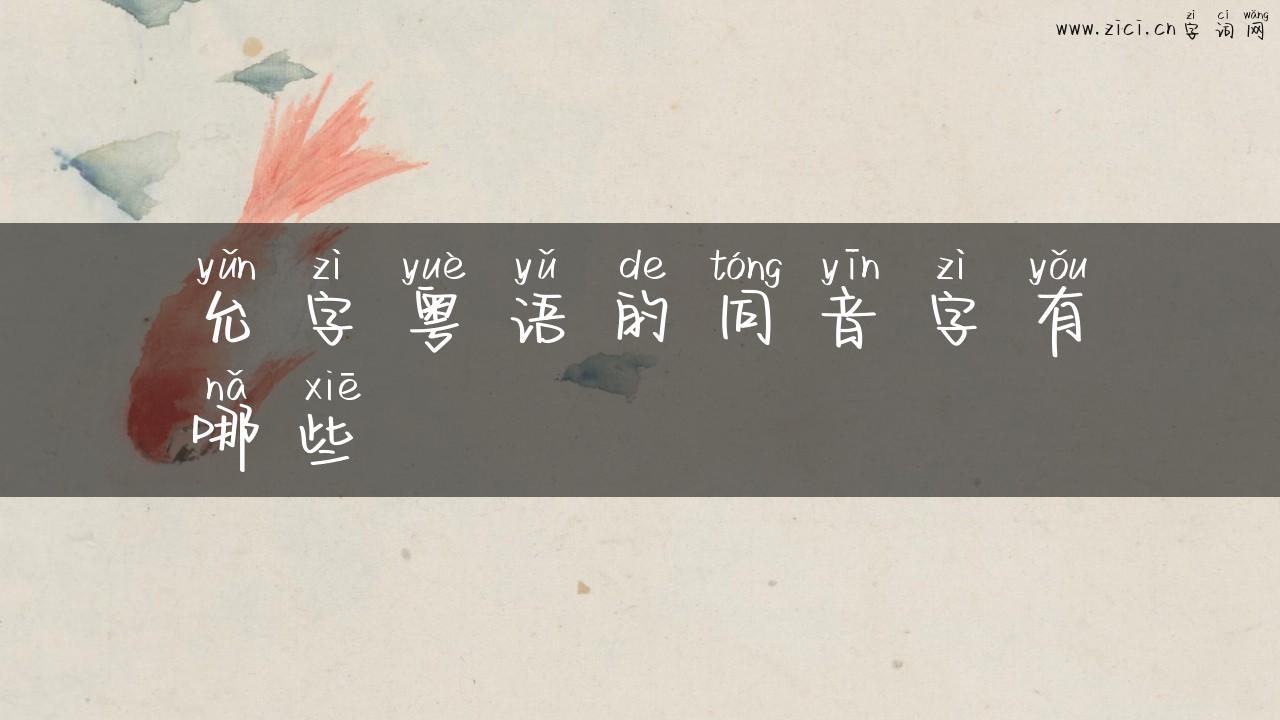 zì cí wǎng
www.zici.cn字词网
yǔn zì yuè yǔ de tóng yīn zì yǒu
允字粤语的同音字有
nǎ xiē
哪些